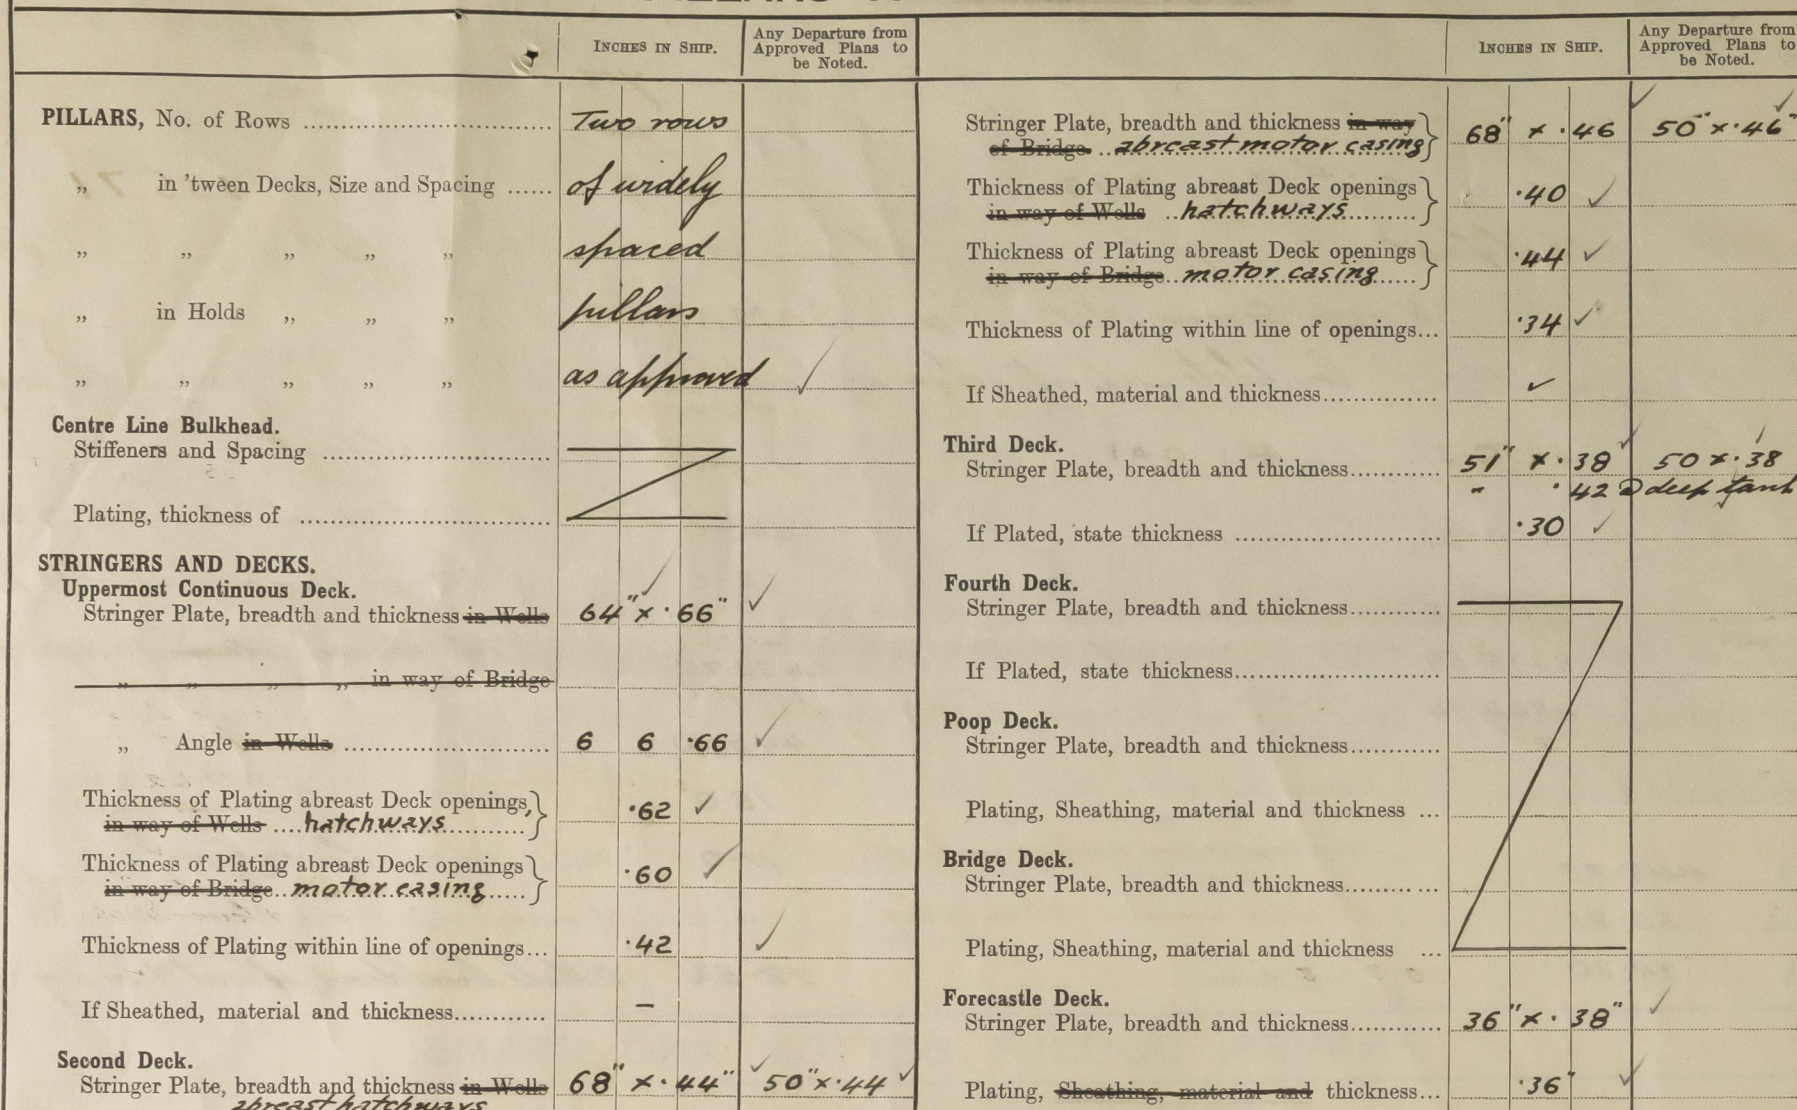 INCHES IN SHIP.
Any Departure from
Approved Plans to
be Noted.
PILLARS, No. of Rows Two rows
„ in 'tween Decks, Size and Spacing of widely
„ „ „ „ „ spaced
„ in Holds „ „ „ pillars
„ „ „ „ „ as approved ✓
Centre Line Bulkhead.
Stiffeners and Spacing
Plating, thickness of
STRINGERS AND DECKS.
Uppermost Continuous Deck.
Stringer Plate, breadth and thickness in Wells 64" x .66" ✓
„ „ „ „ in way of Bridge
„ Angle in Wells 6 6 .66 ✓
Thickness of Plating abreast Deck openings,
in way of Wells hatchways .62 ✓
Thickness of Plating abreast Deck openings
in way of Bridge motor casing .60 ✓
Thickness of Plating within line of openings... .42 ✓
If Sheathed, material and thickness —
Second Deck.
Stringer Plate, breadth and thickness in Wells 68" x .44" ✓ 50" x .44 ✓
abreast hatchways
INCHES IN SHIP.
Any Departure from
Approved Plans to
be Noted.
Stringer Plate, breadth and thickness in way
of Bridge abreast motor casing 68" x .46 ✓ 50" x .46" ✓
Thickness of Plating abreast Deck openings
in way of Wells hatchways .40 ✓
Thickness of Plating abreast Deck openings
in way of Bridge motor casing .44 ✓
Thickness of Plating within line of openings... .34 ✓
If Sheathed, material and thickness ✓
Third Deck.
Stringer Plate, breadth and thickness 51" x .38 ✓ 50 x .38 ✓
" .42 @ deep tank
If Plated, state thickness .30 ✓
Fourth Deck.
Stringer Plate, breadth and thickness
If Plated, state thickness
Poop Deck.
Stringer Plate, breadth and thickness
Plating, Sheathing, material and thickness ...
Bridge Deck.
Stringer Plate, breadth and thickness
Plating, Sheathing, material and thickness ...
Forecastle Deck.
Stringer Plate, breadth and thickness 36" x .38" ✓
Plating, Sheathing, material and thickness... .36" ✓